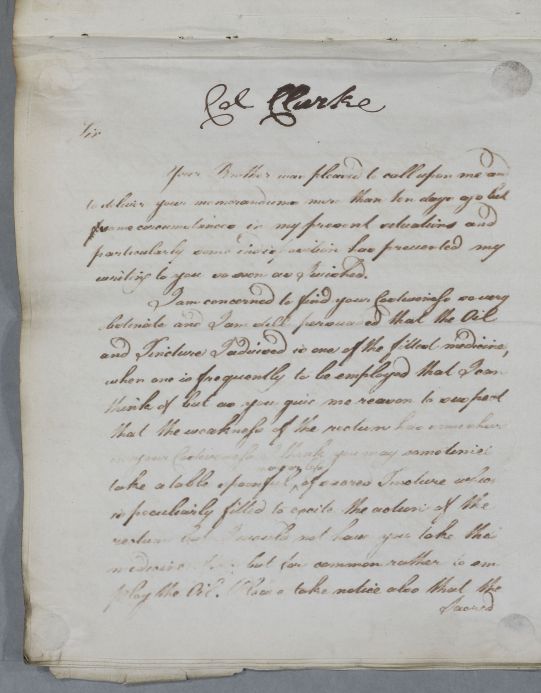 Col Clarke
Sir
Your Brother was pleased to call upon me and
to deliver your memorandums more than ten days ago but
some circumstances in my present situations and
particularly some indisposition has prevented my
writing to you so soon as I wished.
I am concerned to find your Costiveness so very
obstinate and I am still persuaded that the Oil
and Tincture I advised is one of the fittest medicine,
when one is frequently to be employed that I can
think of but as you give me reason to suspect
that the weakness of the rectum has some share
in your Costiveness I think you may sometimes
take a table spoonful, of sacred Tincture which
is peculiarly fitted to excite the action of the
rectum but I would not have you take this
medicine but for common rather to em
ploy the Oil. Please take notice also that the
Sacred